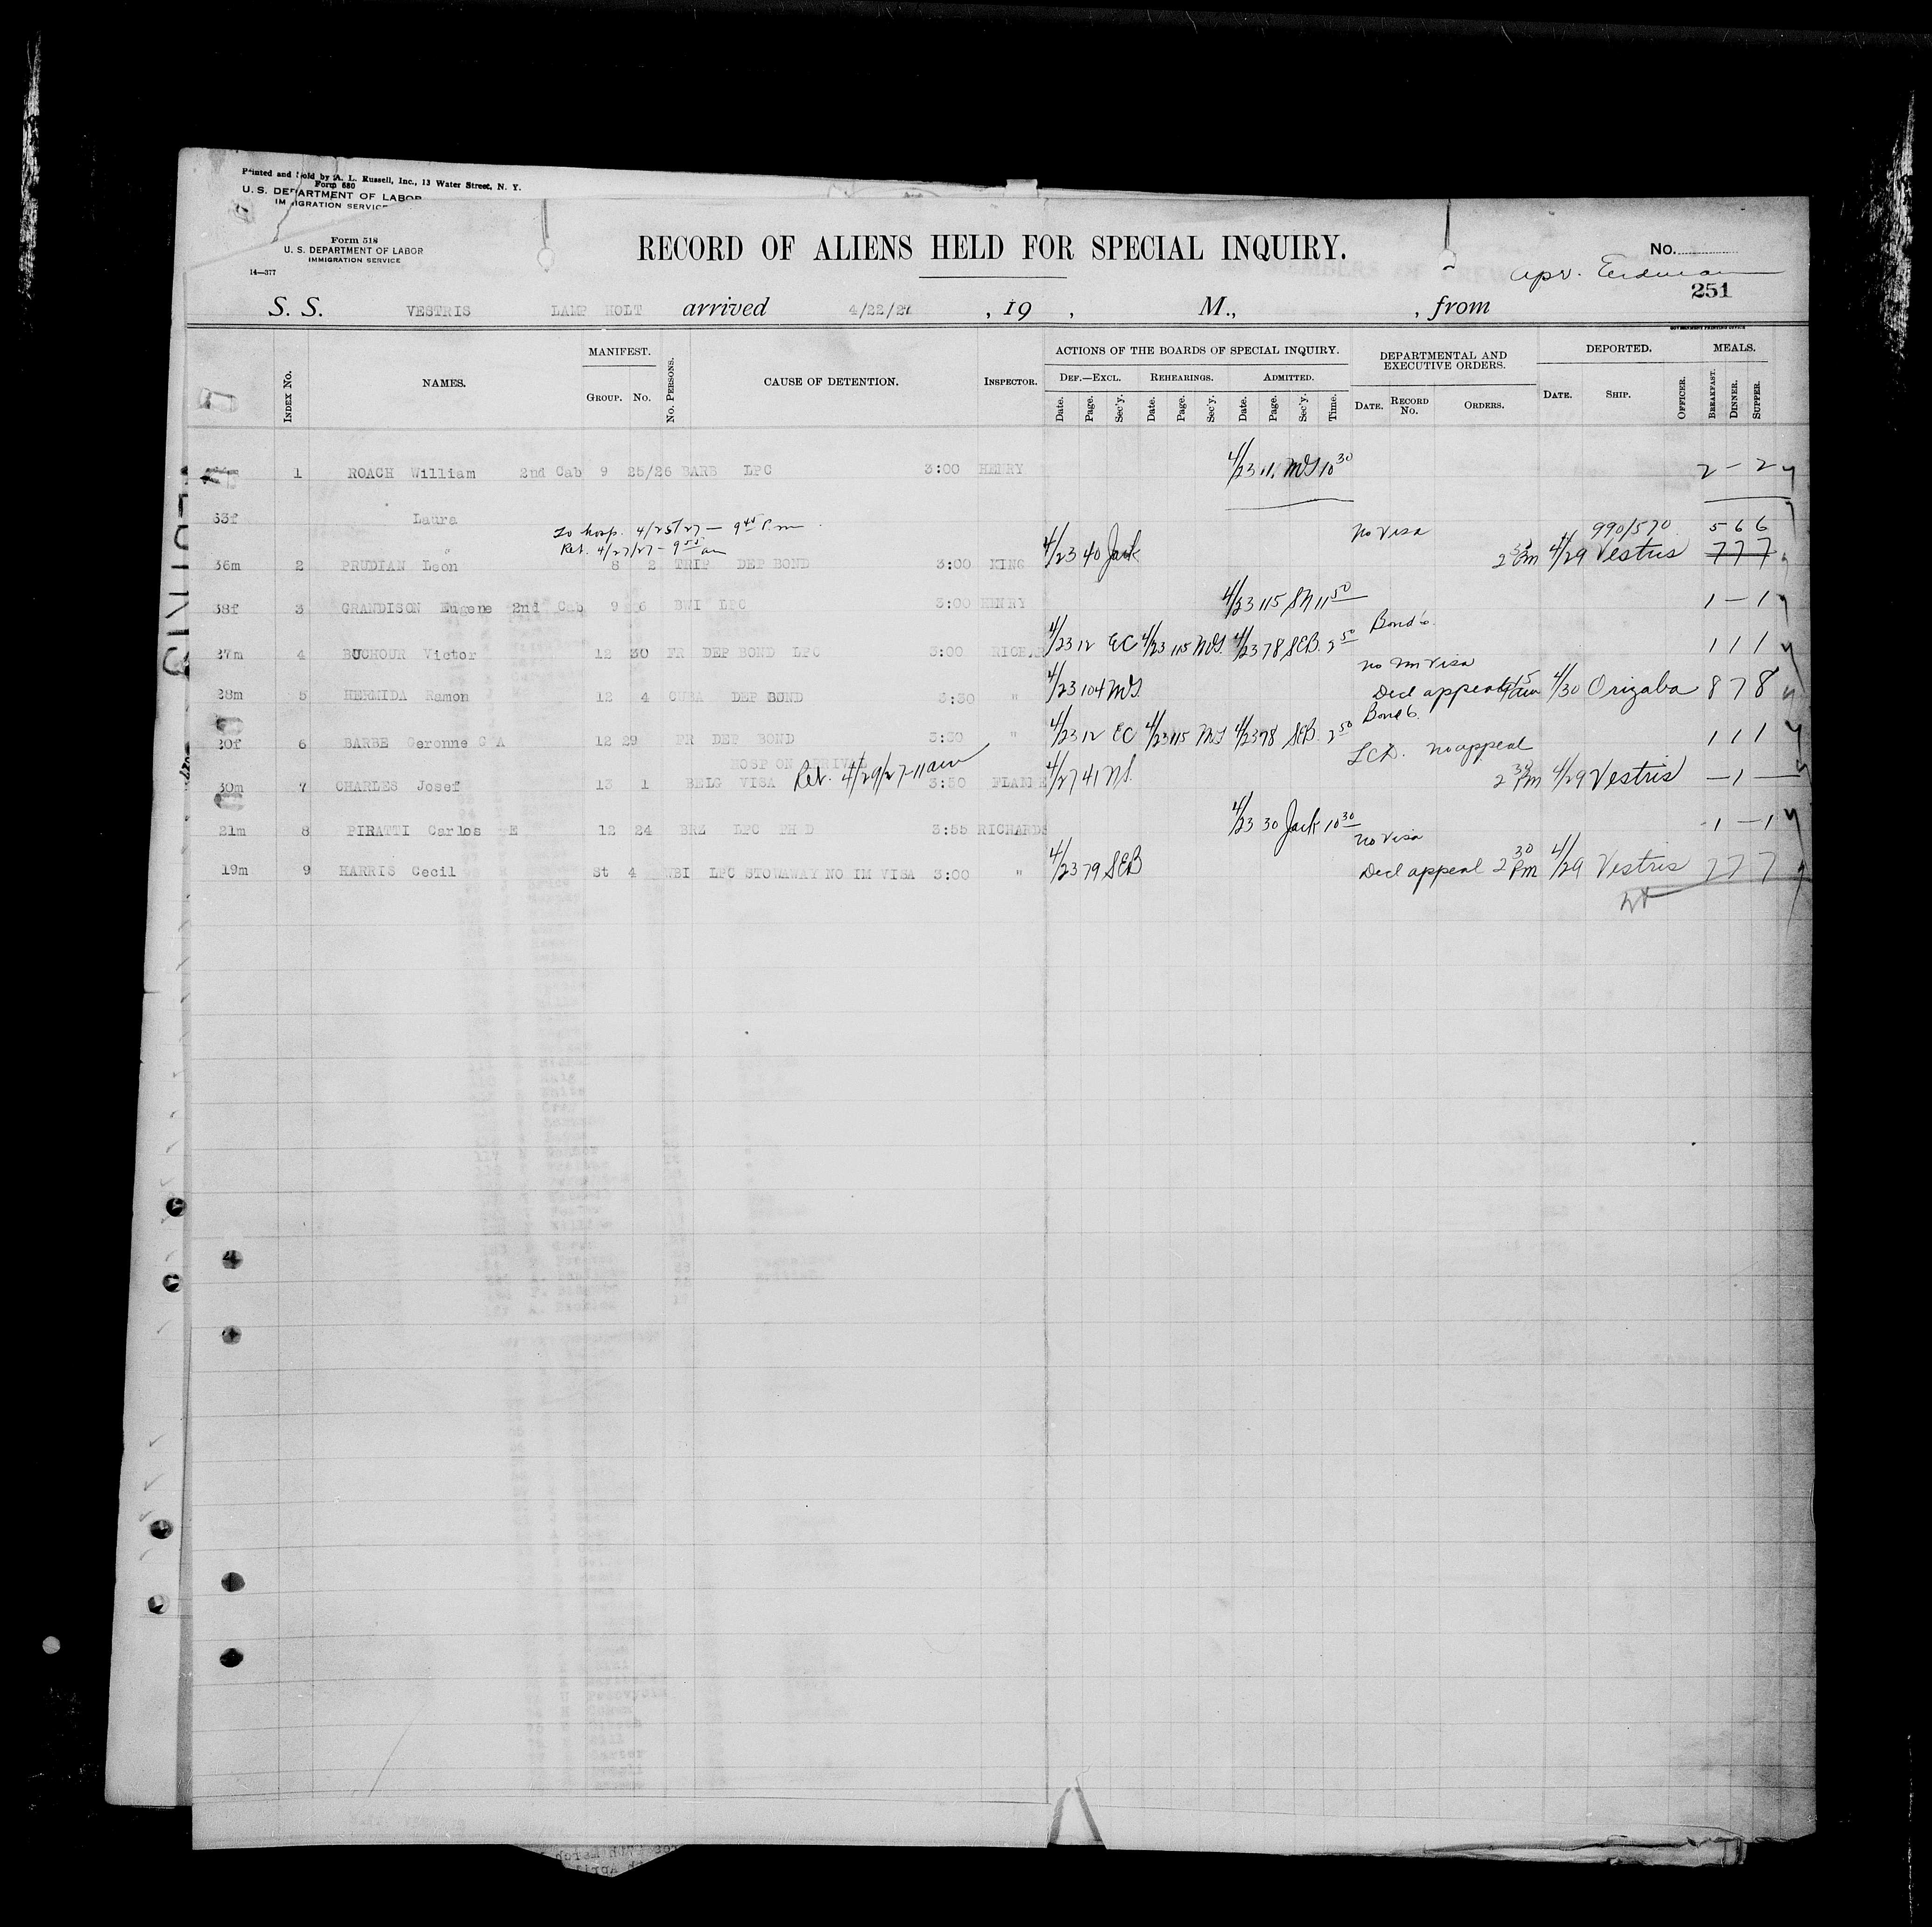 Printed and Sold by A. L. Russell, Inc., 13 Water Street, N. Y.
Form 680
U. S. DEPARTMENT OF LABOR
IMMIGRATION SERVICE
Form 518
U. S. DEPARTMENT OF LABOR
IMMIGRATION SERVICE
14—377
RECORD OF ALIENS HELD FOR SPECIAL INQUIRY.
No.
251
S. S. VESTRIS LAMP HOLT arrived 4/22/27, 19 , M., , from
GOVERNMENT PRINTING OFFICE
MANIFEST. ACTIONS OF THE BOARDS OF SPECIAL INQUIRY. DEPARTMENTAL AND EXECUTIVE ORDERS. DEPORTED. MEALS.
INDEX NO. NAMES. GROUP. NO. NO. PERSONS. CAUSE OF DETENTION. INSPECTOR. DEF.—EXCL. REHEARINGS. ADMITTED.
Date. Page. Sec'y. Date. Page. Sec'y. Date. Page. Sec'y. Time. DATE. RECORD NO. ORDERS. DATE. SHIP. OFFICER. BREAKFAST. DINNER. SUPPER.
1 ROACH William 2nd Cab 9 25/26 BARB LPC 3:00 HENRY 4/23 11 MS 10 30 2 - 2
63f Laura
To hosp. 4/25/27 — 9 45 P.m
Ret. 4/27/27 — 9 55 am
No Visa 990/570 5 6 6
36m 2 PRUDIAN Leon 8 2 TRIP DEP BOND 3:00 KING 4/23 40 Jack 2 30 Pm 4/29 Vestris 7 7 7
38f 3 GRANDISON Eugene 2nd Cab 9 6 BWI LPC 3:00 HENRY 4/23 115 SN 11 50 1 - 1
Bond
27m 4 BUCHOUR Victor 12 30 FR DEP BOND LPC 3:00 RICHA 4/23 12 EC 4/23 115 MS. 4/23 78 SEB. 2 50 1 1 1
no Im Visa
28m 5 HERMIDA Ramon 12 4 CUBA DEP BOND 3:30 " 4/23 104 MS Decl appeal 4/30 Orizaba 8 7 8
Bond
20f 6 BARBE Geronne C A 12 29 FR DEP BOND 3:30 " 4/23 12 EC 4/23 115 MS 4/23 78 SEB. 2 50 1 1 1
HOSP ON ARRIVAL
Ret. 4/29/27-11am
no appeal
30m 7 CHARLES Josef 13 1 BELG VISA 3:30 4/27 41 NS. 2 30 Pm 4/29 Vestris - 1 -
21m 8 PIRATTI Carlos E 12 24 BRZ LPC PH D 3:55 RICHARDS 4/23 30 Jack 10 30 - 1 - 1
no Visa
19m 9 HARRIS Cecil St 4 WBI LPC STOWAWAY NO IM VISA 3:00 " 4/23 79 SEB Decl appeal 2 30 Pm 4/29 Vestris 7 7 7